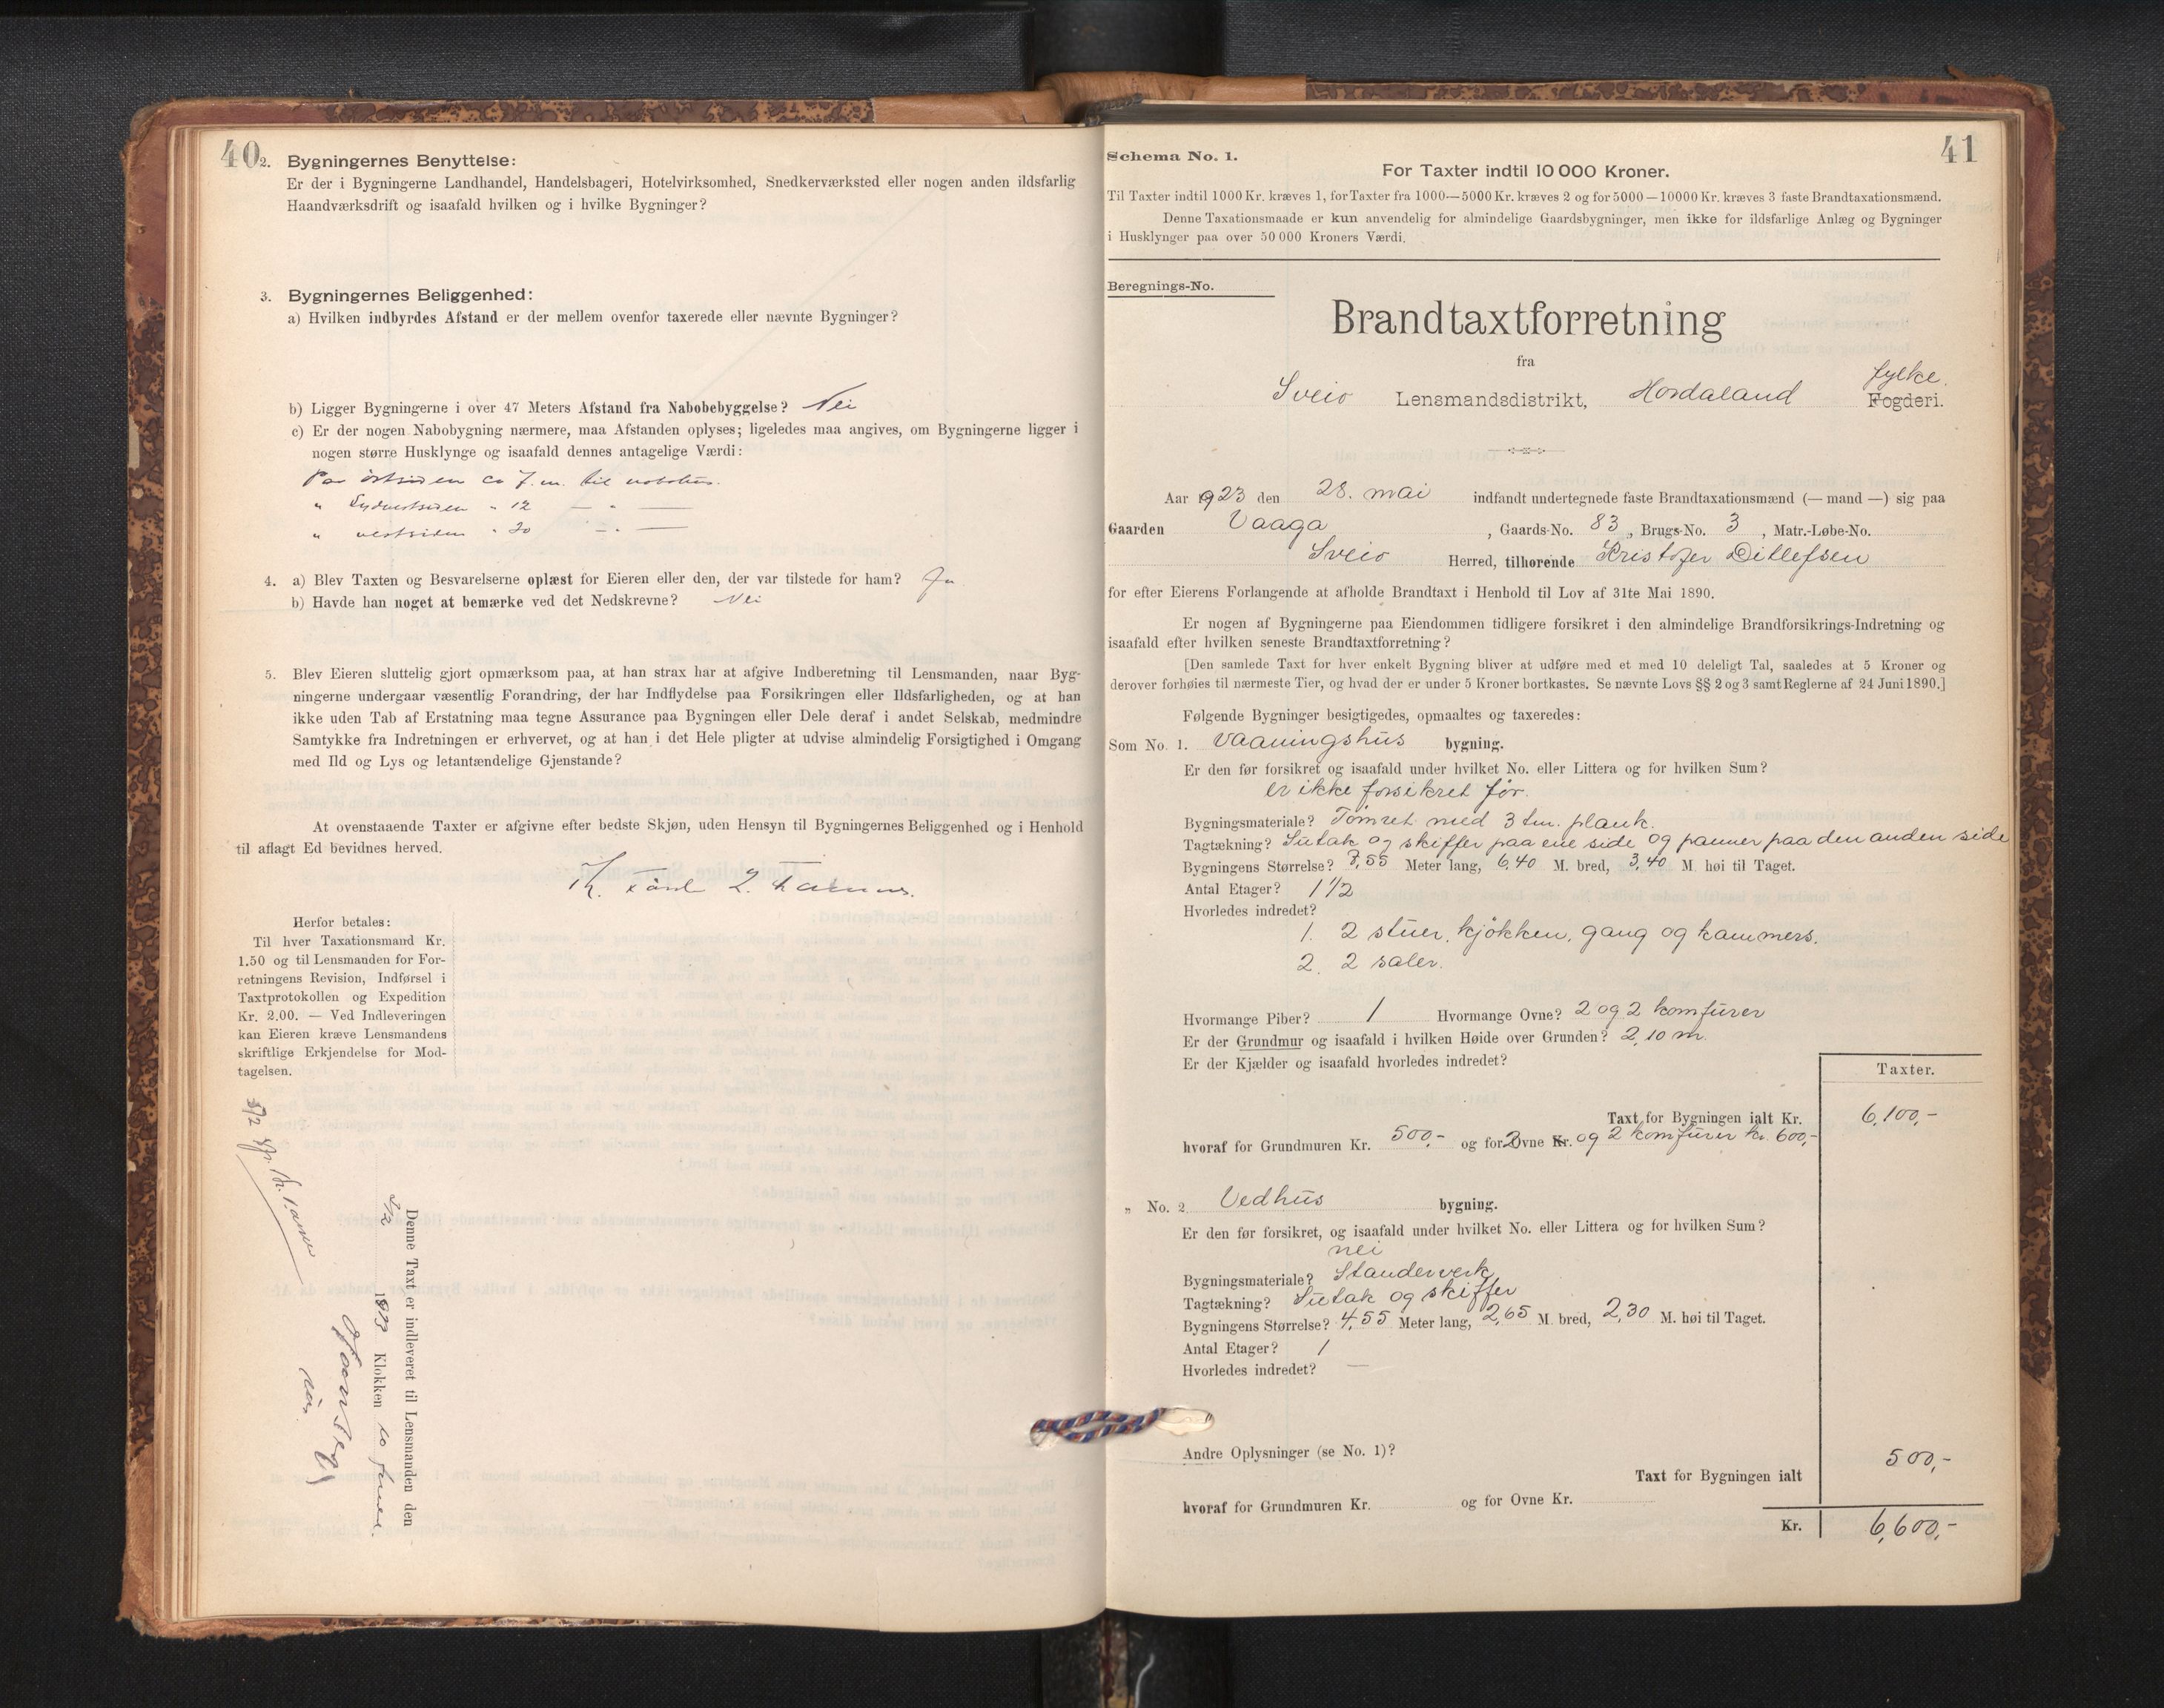 40
2. Bygningernes Benyttelse:
Er der i Bygningerne Landhandel, Handelsbageri, Hotelvirksomhed, Snedkerværksted eller nogen anden ildsfarlig
Haandværksdrift og isaafald hvilken og i hvilke Bygninger?
3. Bygningernes Beliggenhed:
a) Hvilken indbyrdes Afstand er der mellem ovenfor taxerede eller nævnte Bygninger?
b) Ligger Bygningerne i over 47 Meters Afstand fra Nabobebyggelse? Nei
c) Er der nogen Nabobygning nærmere, maa Afstanden oplyses; ligeledes maa angives, om Bygningerne ligger i
nogen større Husklynge og isaafald dennes antagelige Værdi:
Paa østsiden ca 7 m. til nabohus.
" Sydvestsiden " 12 — " —
" vestsiden " 20 — " —
4. a) Blev Taxten og Besvarelserne oplæst for Eieren eller den, der var tilstede for ham? Ja
b) Havde han noget at bemærke ved det Nedskrevne? Nei
5. Blev Eieren sluttelig gjort opmærksom paa, at han strax har at afgive Indberetning til Lensmanden, naar Byg-
ningerne undergaar væsentlig Forandring, der har Indflydelse paa Forsikringen eller Ildsfarligheden, og at han
ikke uden Tab af Erstatning maa tegne Assurance paa Bygningen eller Dele deraf i andet Selskab, medmindre
Samtykke fra Indretningen er erhvervet, og at han i det Hele pligter at udvise almindelig Forsigtighed i Omgang
med Ild og Lys og letantændelige Gjenstande?
At ovenstaaende Taxter er afgivne efter bedste Skjøn, uden Hensyn til Bygningernes Beliggenhed og i Henhold
til aflagt Ed bevidnes herved.
Herfor betales:
Til hver Taxationsmand Kr.
1.50 og til Lensmanden for For-
retningens Revision, Indførsel i
Taxtprotokollen og Expedition
Kr. 2.00. — Ved Indleveringen
kan Eieren kræve Lensmandens
skriftlige Erkjendelse for Mod-
tagelsen.
Denne Taxt er indleveret til Lensmanden den
Klokken 10 form.
41
Schema No. 1.
For Taxter indtil 10 000 Kroner.
Til Taxter indtil 1000 Kr. kræves 1, for Taxter fra 1000—5000 Kr. kræves 2 og for 5000—10000 Kr. kræves 3 faste Brandtaxationsmænd.
Denne Taxationsmaade er kun anvendelig for almindelige Gaardsbygninger, men ikke for ildsfarlige Anlæg og Bygninger
i Husklynger paa over 50 000 Kroners Værdi.
Beregnings-No.
Brandtaxtforretning
fra
fylke.
Sveio Lensmandsdistrikt, Hordaland Fogderi.
Aar 1923 den 28. mai indfandt undertegnede faste Brandtaxationsmænd (— mand —) sig paa
Gaarden Vaaga, Gaards-No. 83, Brugs-No. 3, Matr.-Løbe-No.
Sveio Herred, tilhørende Kristofer Ditlefsen
for efter Eierens Forlangende at afholde Brandtaxt i Henhold til Lov af 31te Mai 1890.
Er nogen af Bygningerne paa Eiendommen tidligere forsikret i den almindelige Brandforsikrings-Indretning og
isaafald efter hvilken seneste Brandtaxtforretning?
[Den samlede Taxt for hver enkelt Bygning bliver at udføre med et med 10 deleligt Tal, saaledes at 5 Kroner og
derover forhøies til nærmeste Tier, og hvad der er under 5 Kroner bortkastes. Se nævnte Lovs §§ 2 og 3 samt Reglerne af 24 Juni 1890.]
Følgende Bygninger besigtigedes, opmaaltes og taxeredes:
Som No. 1. Vaaningshus bygning.
Er den før forsikret og isaafald under hvilket No. eller Littera og for hvilken Sum?
er ikke forsikret før.
Bygningsmateriale? Tømret med 3 tm. plank.
Tagtækning? Sutak og skiffer paa ene side og panner paa den anden side
Bygningens Størrelse? 7,55 Meter lang, 6,40 M. bred, 3,40 M. høi til Taget.
Antal Etager? 1 1/2
Hvorledes indredet?
1. 2 stuer, kjøkken, gang og kammers.
2. 2 saler.
Hvormange Piber? 1 Hvormange Ovne? 2 og 2 komfurer
Er der Grundmur og isaafald i hvilken Høide over Grunden? 2,10 m.
Er der Kjælder og isaafald hvorledes indredet?
Taxter.
Taxt for Bygningen ialt Kr. 6,100,-
hvoraf for Grundmuren Kr. 500,- og for 2 Ovne Kr. og 2 komfurer kr. 600,-
" No. 2 Vedhus bygning.
Er den før forsikret, og isaafald under hvilket No. eller Littera og for hvilken Sum?
nei
Bygningsmateriale? Standerverk
Tagtækning? Sutak og skiffer
Bygningens Størrelse? 4,55 Meter lang, 2,65 M. bred, 2,30 M. høi til Taget.
Antal Etager? 1
Hvorledes indredet? —
Andre Oplysninger (se No. 1)?
Taxt for Bygningen ialt 500,-
hvoraf for Grundmuren Kr. og for Ovne Kr.
Kr. 6,600,-